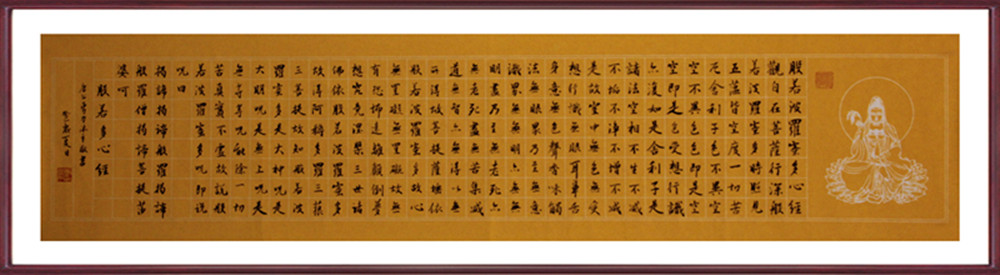 般若波羅蜜多心經
觀自在菩薩行深般
若波羅蜜多時照見
五蘊皆空度一切苦
厄舍利子色不異空
空不異色色即是空
空即是色受想行識
亦復如是舍利子是
諸法空相不生不滅
不垢不淨不增不減
是故空中無色無受
想行識無眼耳鼻舌
身意無色聲香味觸
法無眼界乃至無意
識界無無明亦無無
明盡乃至無老死亦
無老死盡無苦集滅
道無智亦無得以無
所得故菩提薩埵依
般若波羅蜜多故心
無罣礙無罣礙故無
有恐怖遠離顛倒夢
想究竟涅槃三世諸
佛依般若波羅蜜多
故得阿耨多羅三藐
三菩提故知般若波
羅蜜多是大神咒是
大明咒是無上咒是
無等等咒能除一切
苦真實不虛故說般
若波羅蜜多咒即說
咒曰
揭諦揭諦波羅揭諦
般羅僧揭諦菩提薩
婆訶
般若多心經